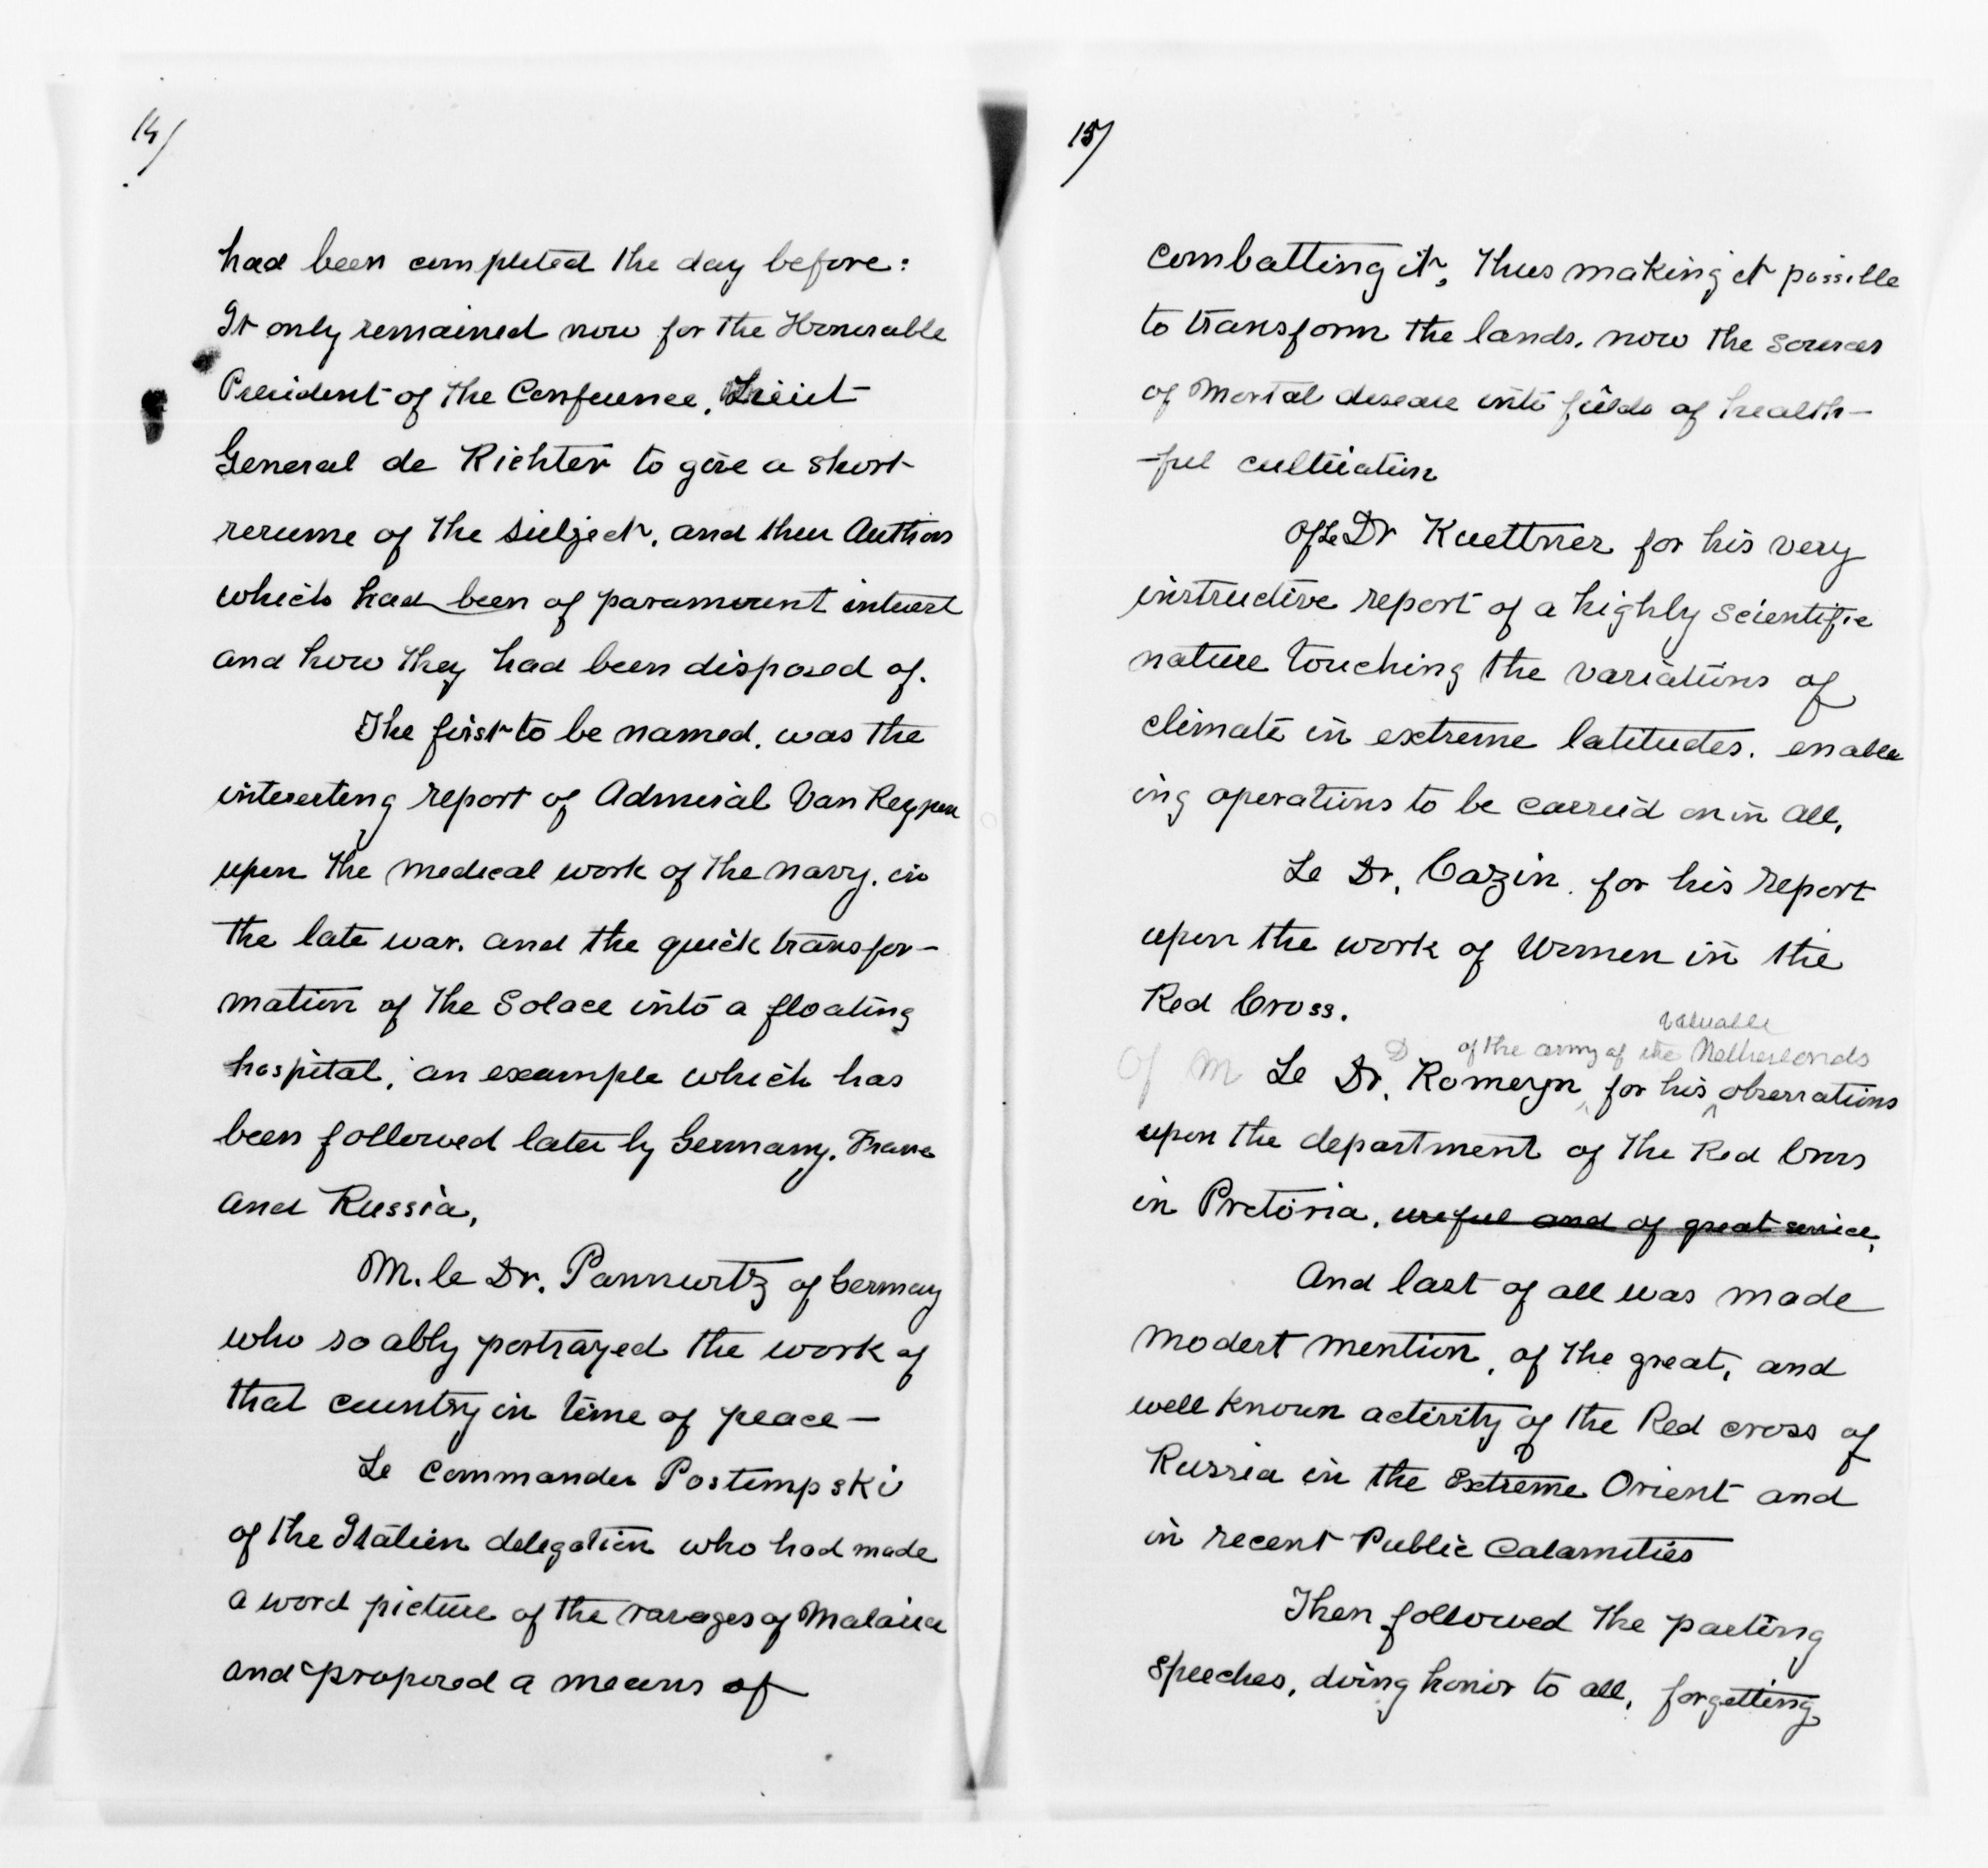 14/
had been completed the day before:
It only remained now for the Honorable
President of the Conference, Lieut
General de Richter to give a short
resume of the subject, and their Authors
which had been of paramount interest
and how they had been disposed of.
The first to be named, was the
interesting report of Admiral Van Reypen
upon the medical work of the navy. in
the late war. and the quick transfor-
mation of the Solace into a floating
hospital, an example which has
been followed later by Germany. France
and Russia,
M. le Dr. Pannwitz of Germany
who so ably portrayed the work of
that country in time of peace —
Le Commander Postempski
of the Italien delegation who had made
a word picture of the ravages of Malaria
and proposed a means of
15/
combatting it, thus making it possible
to transform the lands. now the sources
of Mortal disease into fields of health-
-ful cultivation
Of Le Dr Kuettner for his very
instructive report of a highly scientific
nature touching the variations of
climate in extreme latitudes. enable
ing operations to be carried on in all,
Le Dr, Cazin. for his report
upon the work of Women in the
Red Cross.
valuable
of the army of the Netherlands
Of M Le Dr, Romeyn, for his observations
upon the department of the Red Cross
in Pretoria, useful and of great service,
And last of all was made
modest mention, of the great, and
well known activity of the Red cross of
Russia in the Extreme Orient and
in recent Public Calamities
Then followed the parting
speeches, doing honor to all, forgetting